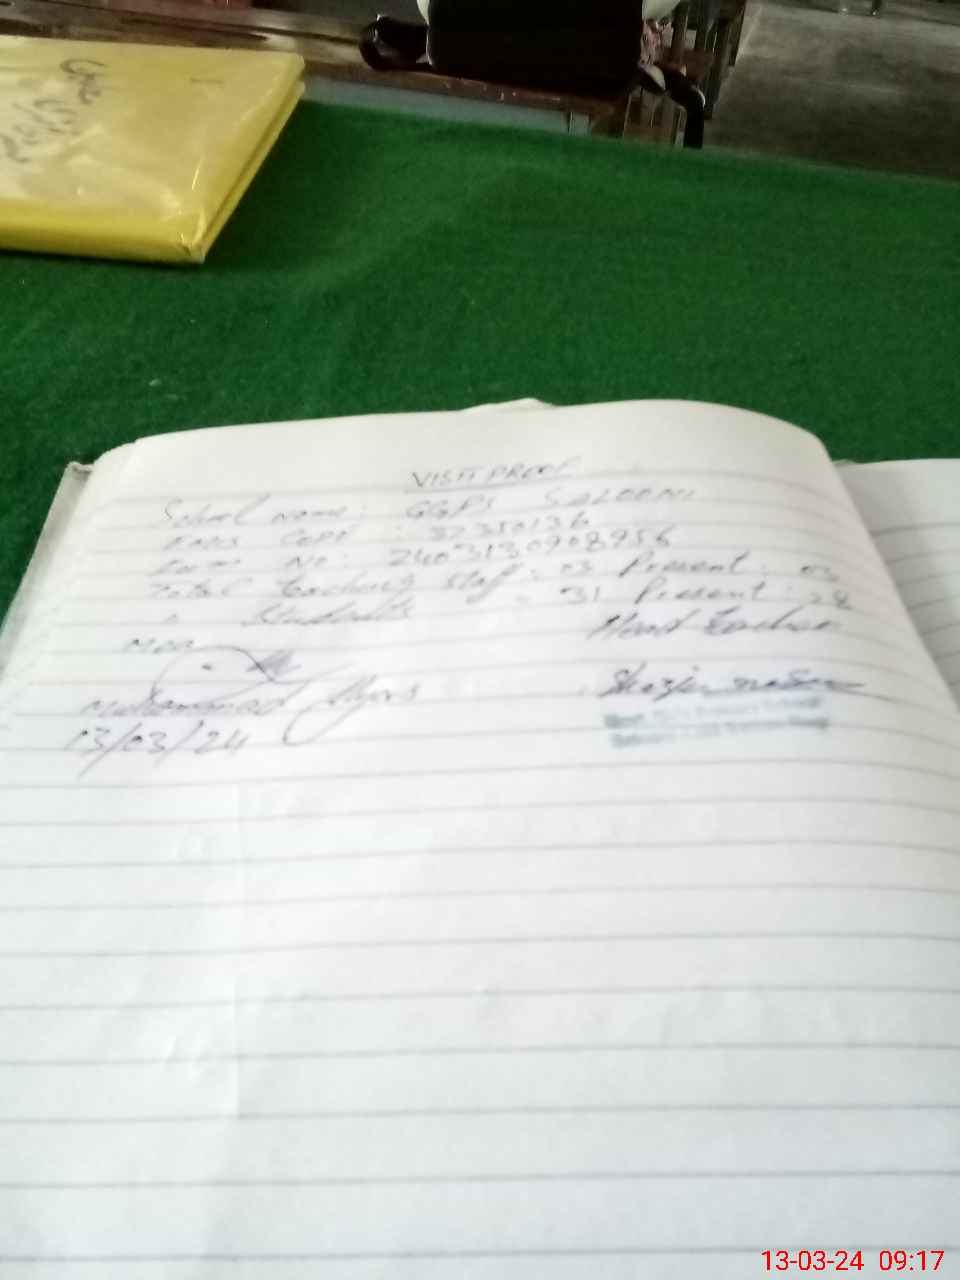 VISIT PROOF
School Name: GGPS SALOONI
EMIS Code : 37350136
Form No: 2403130908956
Total Teaching Staff : 03 Present : 03
" Students : 31 Present : 28
Head Teacher
MEA
Muhammad Ilyas
13/03/24
13-03-24 09:17